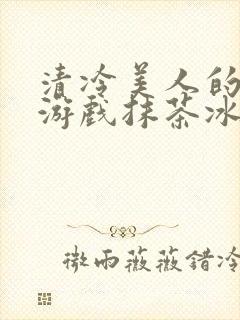 清冷美人的
游戏抹茶冰
微雨薇薇错冷